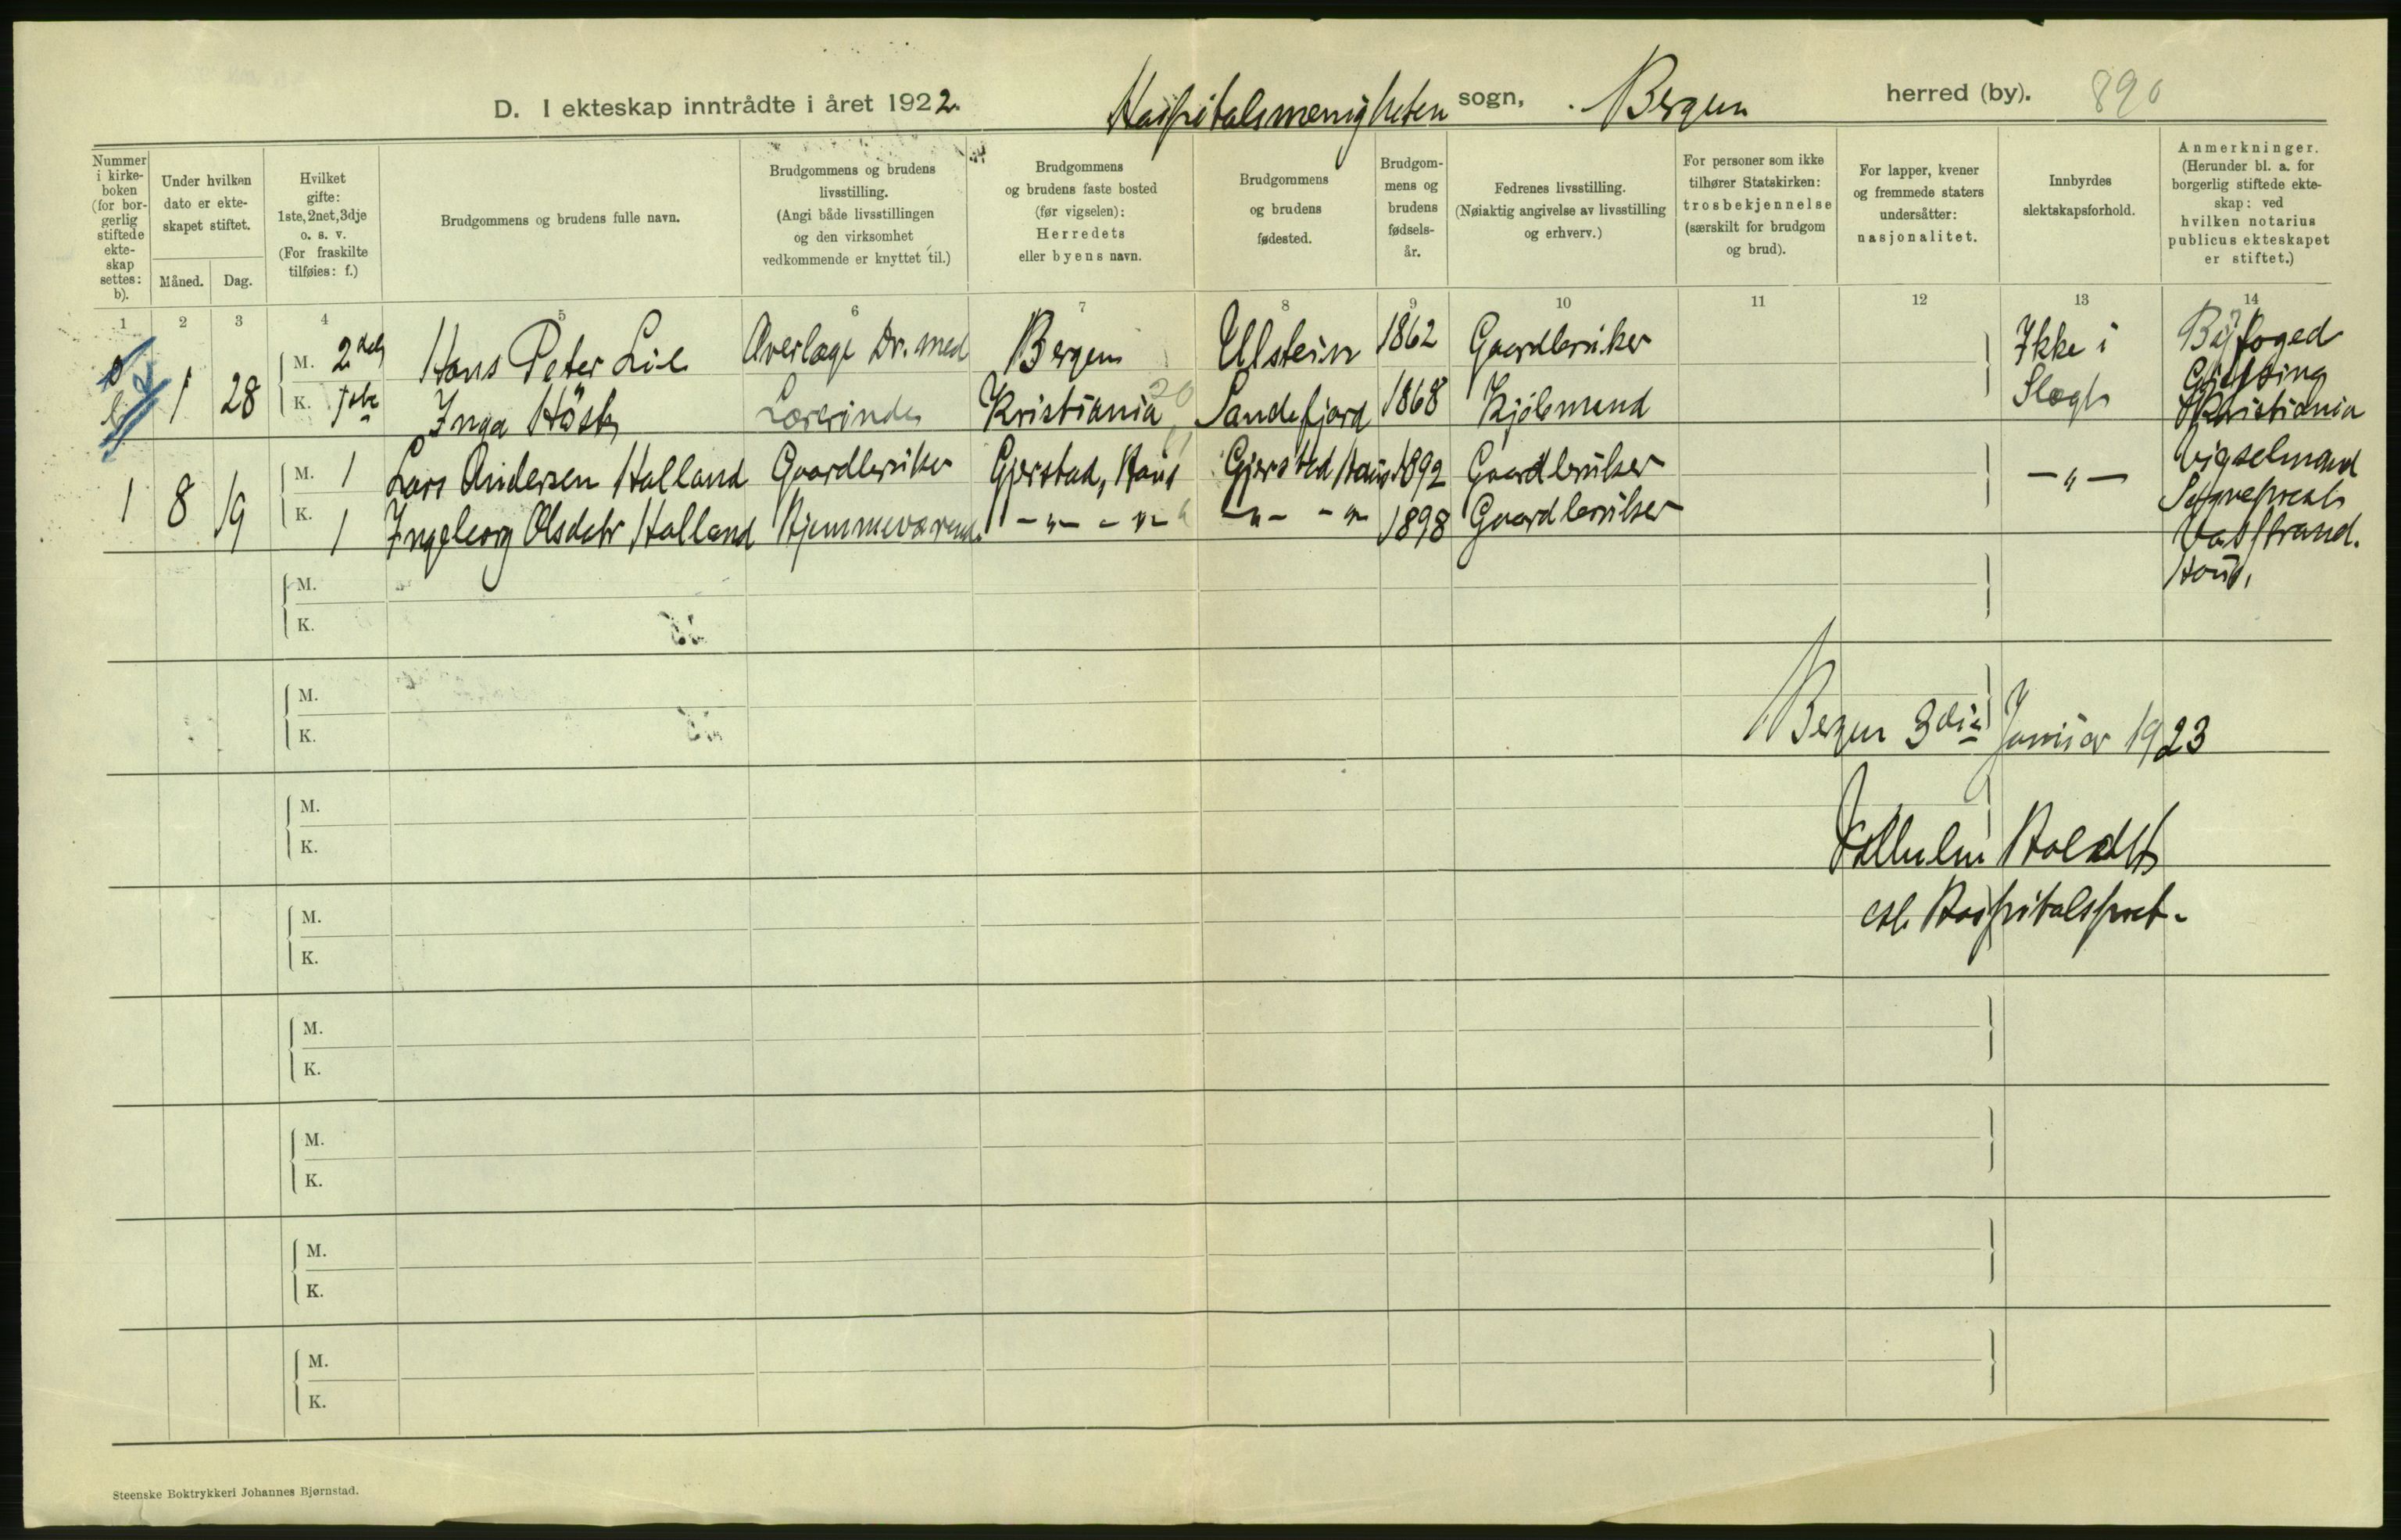 D. I ekteskap inntrådte i året 1922. Hospitalsmenigheten sogn, Bergen herred (by). 890
Nummer i kirke-boken (for bor-gerlig stiftede ekte-skap settes: b).
Under hvilken dato er ekte-skapet stiftet.
Måned. Dag.
Hvilket gifte: 1ste, 2net, 3dje o. s. v. (For fraskilte tilføies: f.)
Brudgommens og brudens fulle navn.
Brudgommens og brudens livsstilling. (Angi både livsstillingen og den virksomhet vedkommende er knyttet til.)
Brudgommens og brudens faste bosted (før vigselen): Herredets eller byens navn.
Brudgommens og brudens fødested.
Brudgom-mens og brudens fødsels-år.
Fedrenes livsstilling. (Nøiaktig angivelse av livsstilling og erhverv.)
For personer som ikke tilhører Statskirken: trosbekjennelse (særskilt for brudgom og brud).
For lapper, kvener og fremmede staters undersåtter: nasjonalitet.
Innbyrdes slektskapsforhold.
Anmerkninger. (Herunder bl. a. for borgerlig stiftede ekte-skap: ved hvilken notarius publicus ekteskapet er stiftet.)
1 2 3 4 5 6 7 8 9 10 11 12 13 14
b 1 28
M. 2det Hans Peter Lie Overlæge Dr. med Bergen Ulstein 1862 Gaardbruker Ikke i Slegt Byfoged
K. 1ste Inga Höst Lærerinde Kristiania Sandefjord 1868 Kjöbmand Kristiania
1 8 19
M. 1 Lars Andersen Halland Gaardbruker Gjerstad, Haus Gjerstad Haus 1892 Gaardbruker — " — Vigselmand
K. 1 Ingeborg Olsdatr Halland Hjemmevärende - " - - " - - " - - " - 1898 Gaardbruker Sogneprest
Haus.
M.
K.
M.
K.
Bergen 3die Januar 1923
M.
K.
Vilhelm Holdt
M.
K.
cst. Hospitalsprest.
M.
K.
M.
K.
M.
K.
M.
K.
Steenske Boktrykkeri Johannes Bjørnstad.